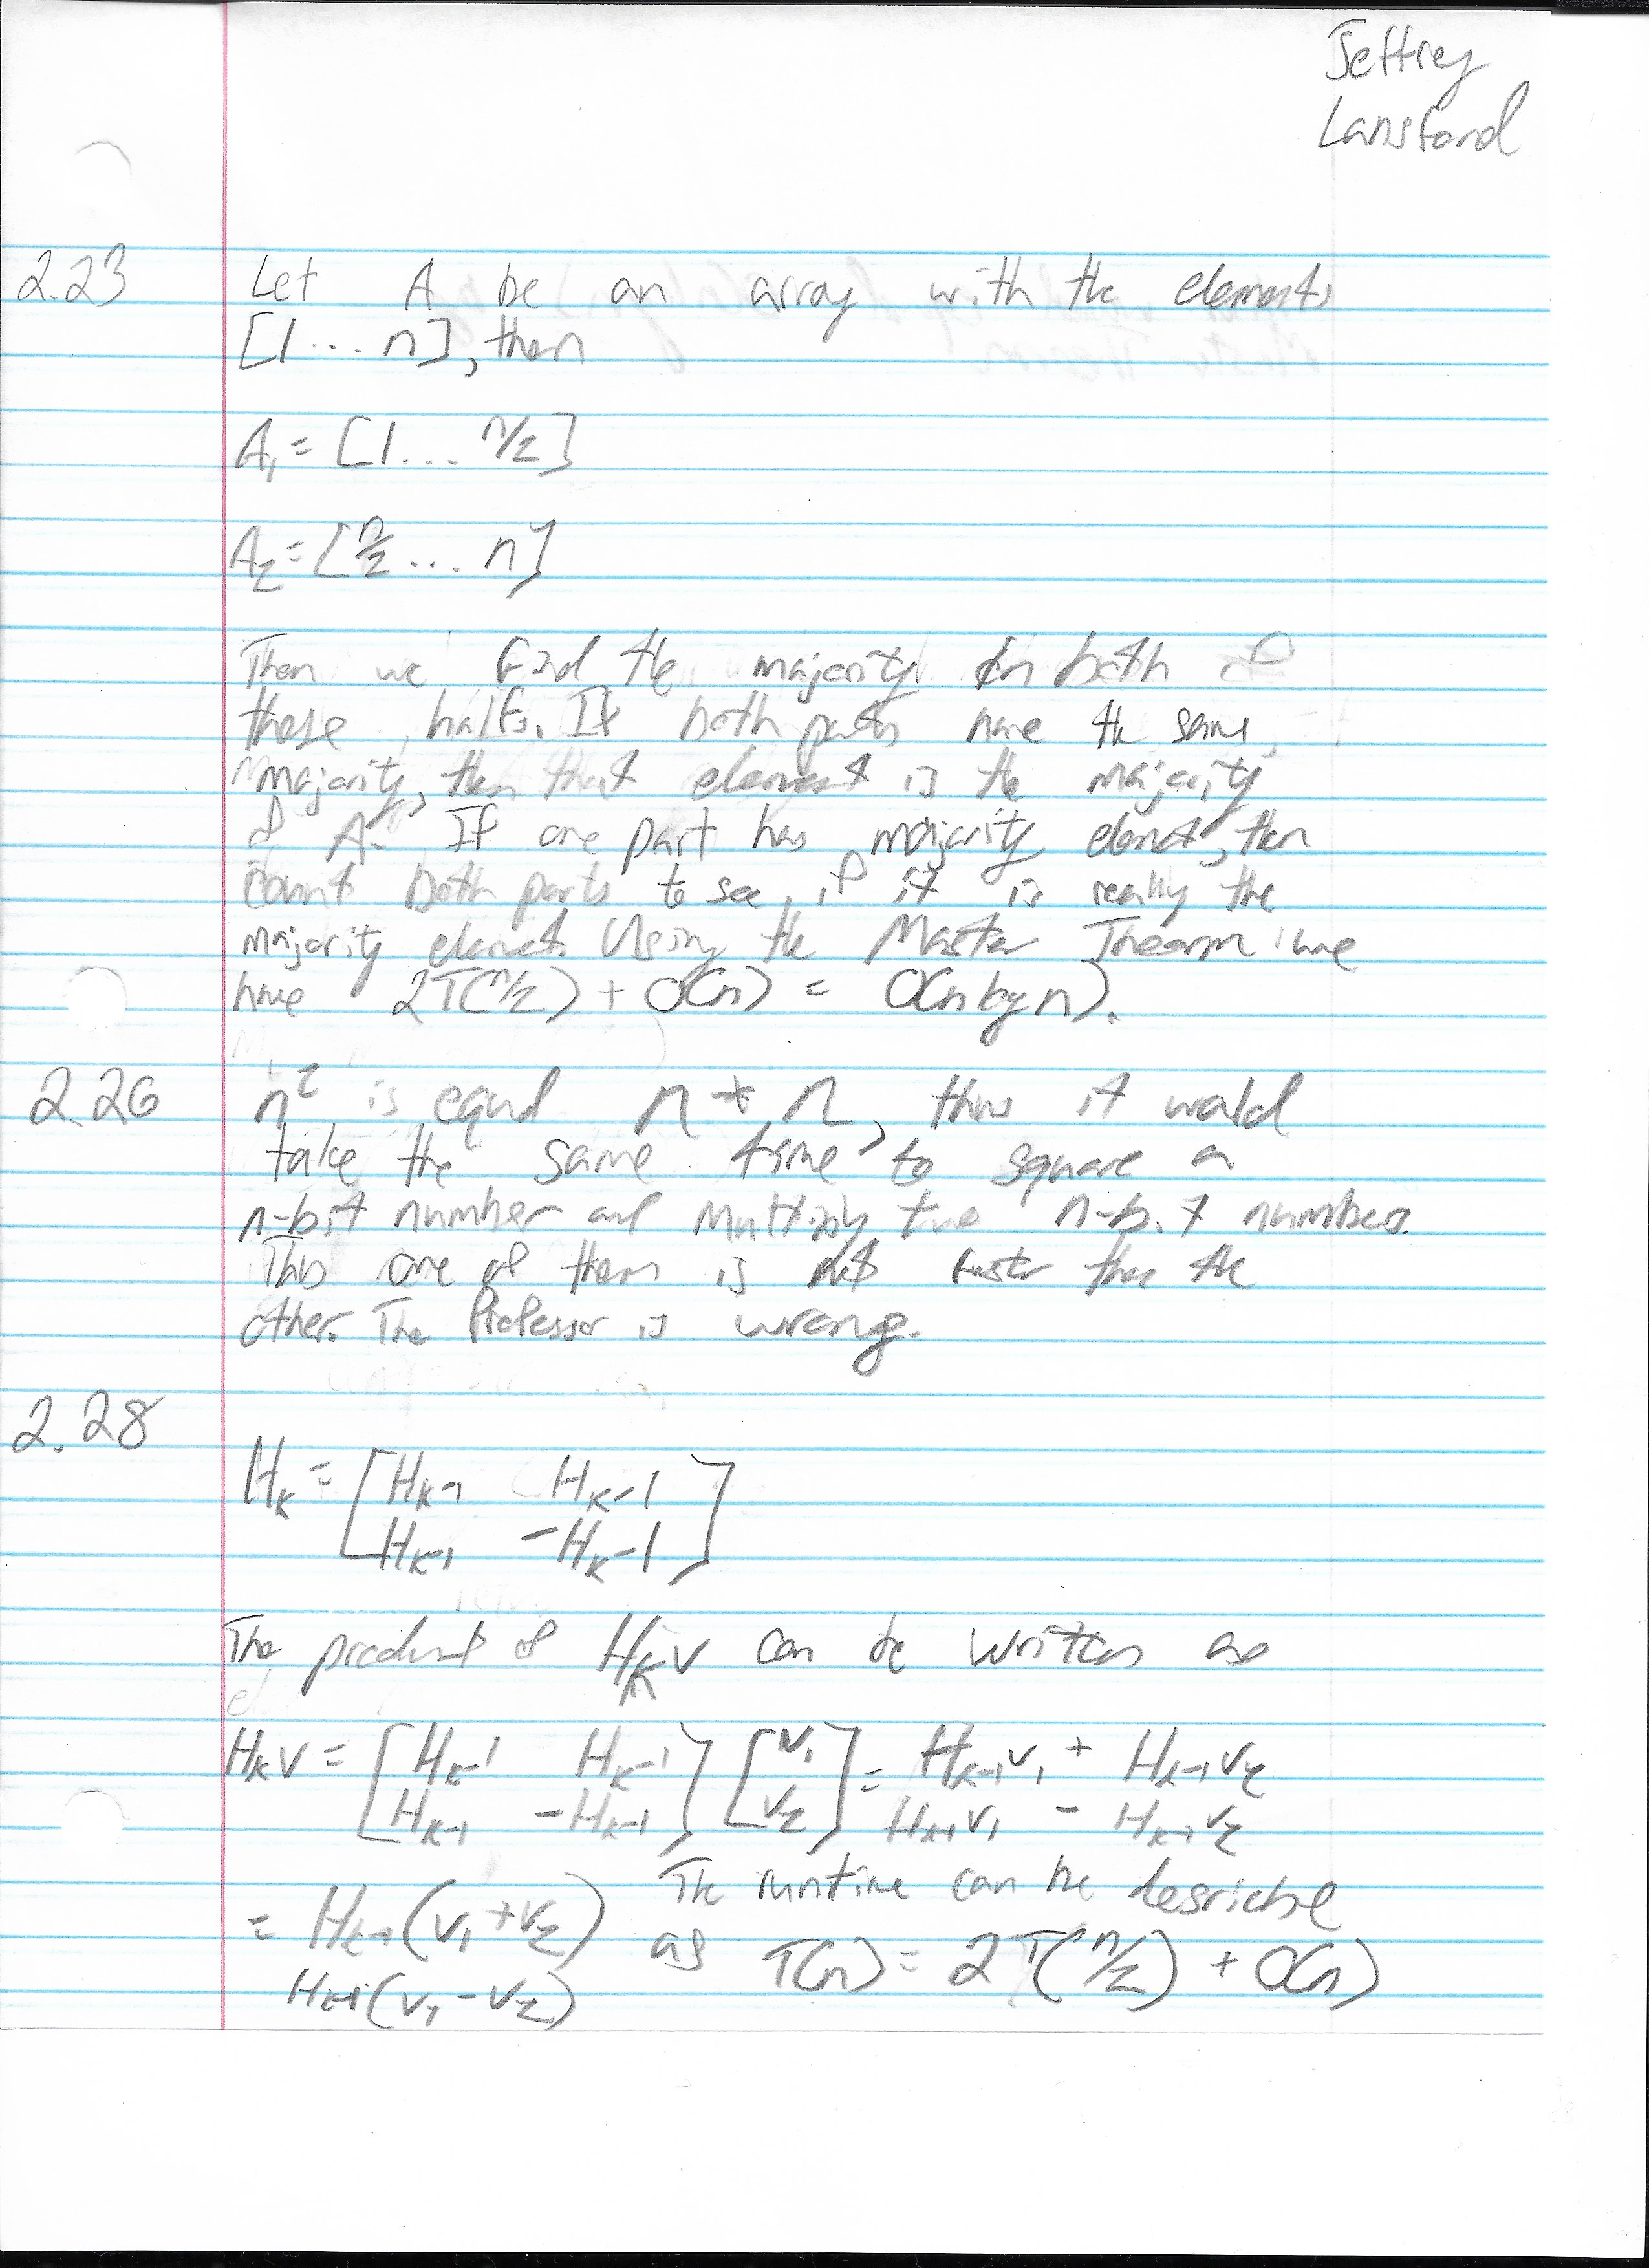 Jeffrey
Lansford
2.23 Let A be an array with the elements
[1 ... n], then
A₁ = [1 ... n/2]
A₂ = [n/2 ... n]
Then we find the majority in both of
these halfs. If both parts have the same
majority, then that element is the majority
of A. If one part has majority elemet, then
count both parts to see if it is really the
majority elemet. Using the Master Theorm we
have 2T(n/2) + O(n) = O(n log n).
2.26 n² is equal n * n, thus it would
take the same time to square a
n-bit number and multiply two n-bit numbers.
This one of them is not faster than the
other. The Professor is wrong.
2.28
H_k = [H_k-1 H_k-1
H_k-1 -H_k-1]
The product of H_k v can be written as
H_k v = [H_k-1 H_k-1] [v₁] = H_k-1 v₁ + H_k-1 v₂
[H_k-1 -H_k-1] [v₂] H_k-1 v₁ - H_k-1 v₂
= H_k-1 (v₁ + v₂) The runtime can be
H_k-1 (v₁ - v₂) as T(n) = 2T(n/2) + O(n)